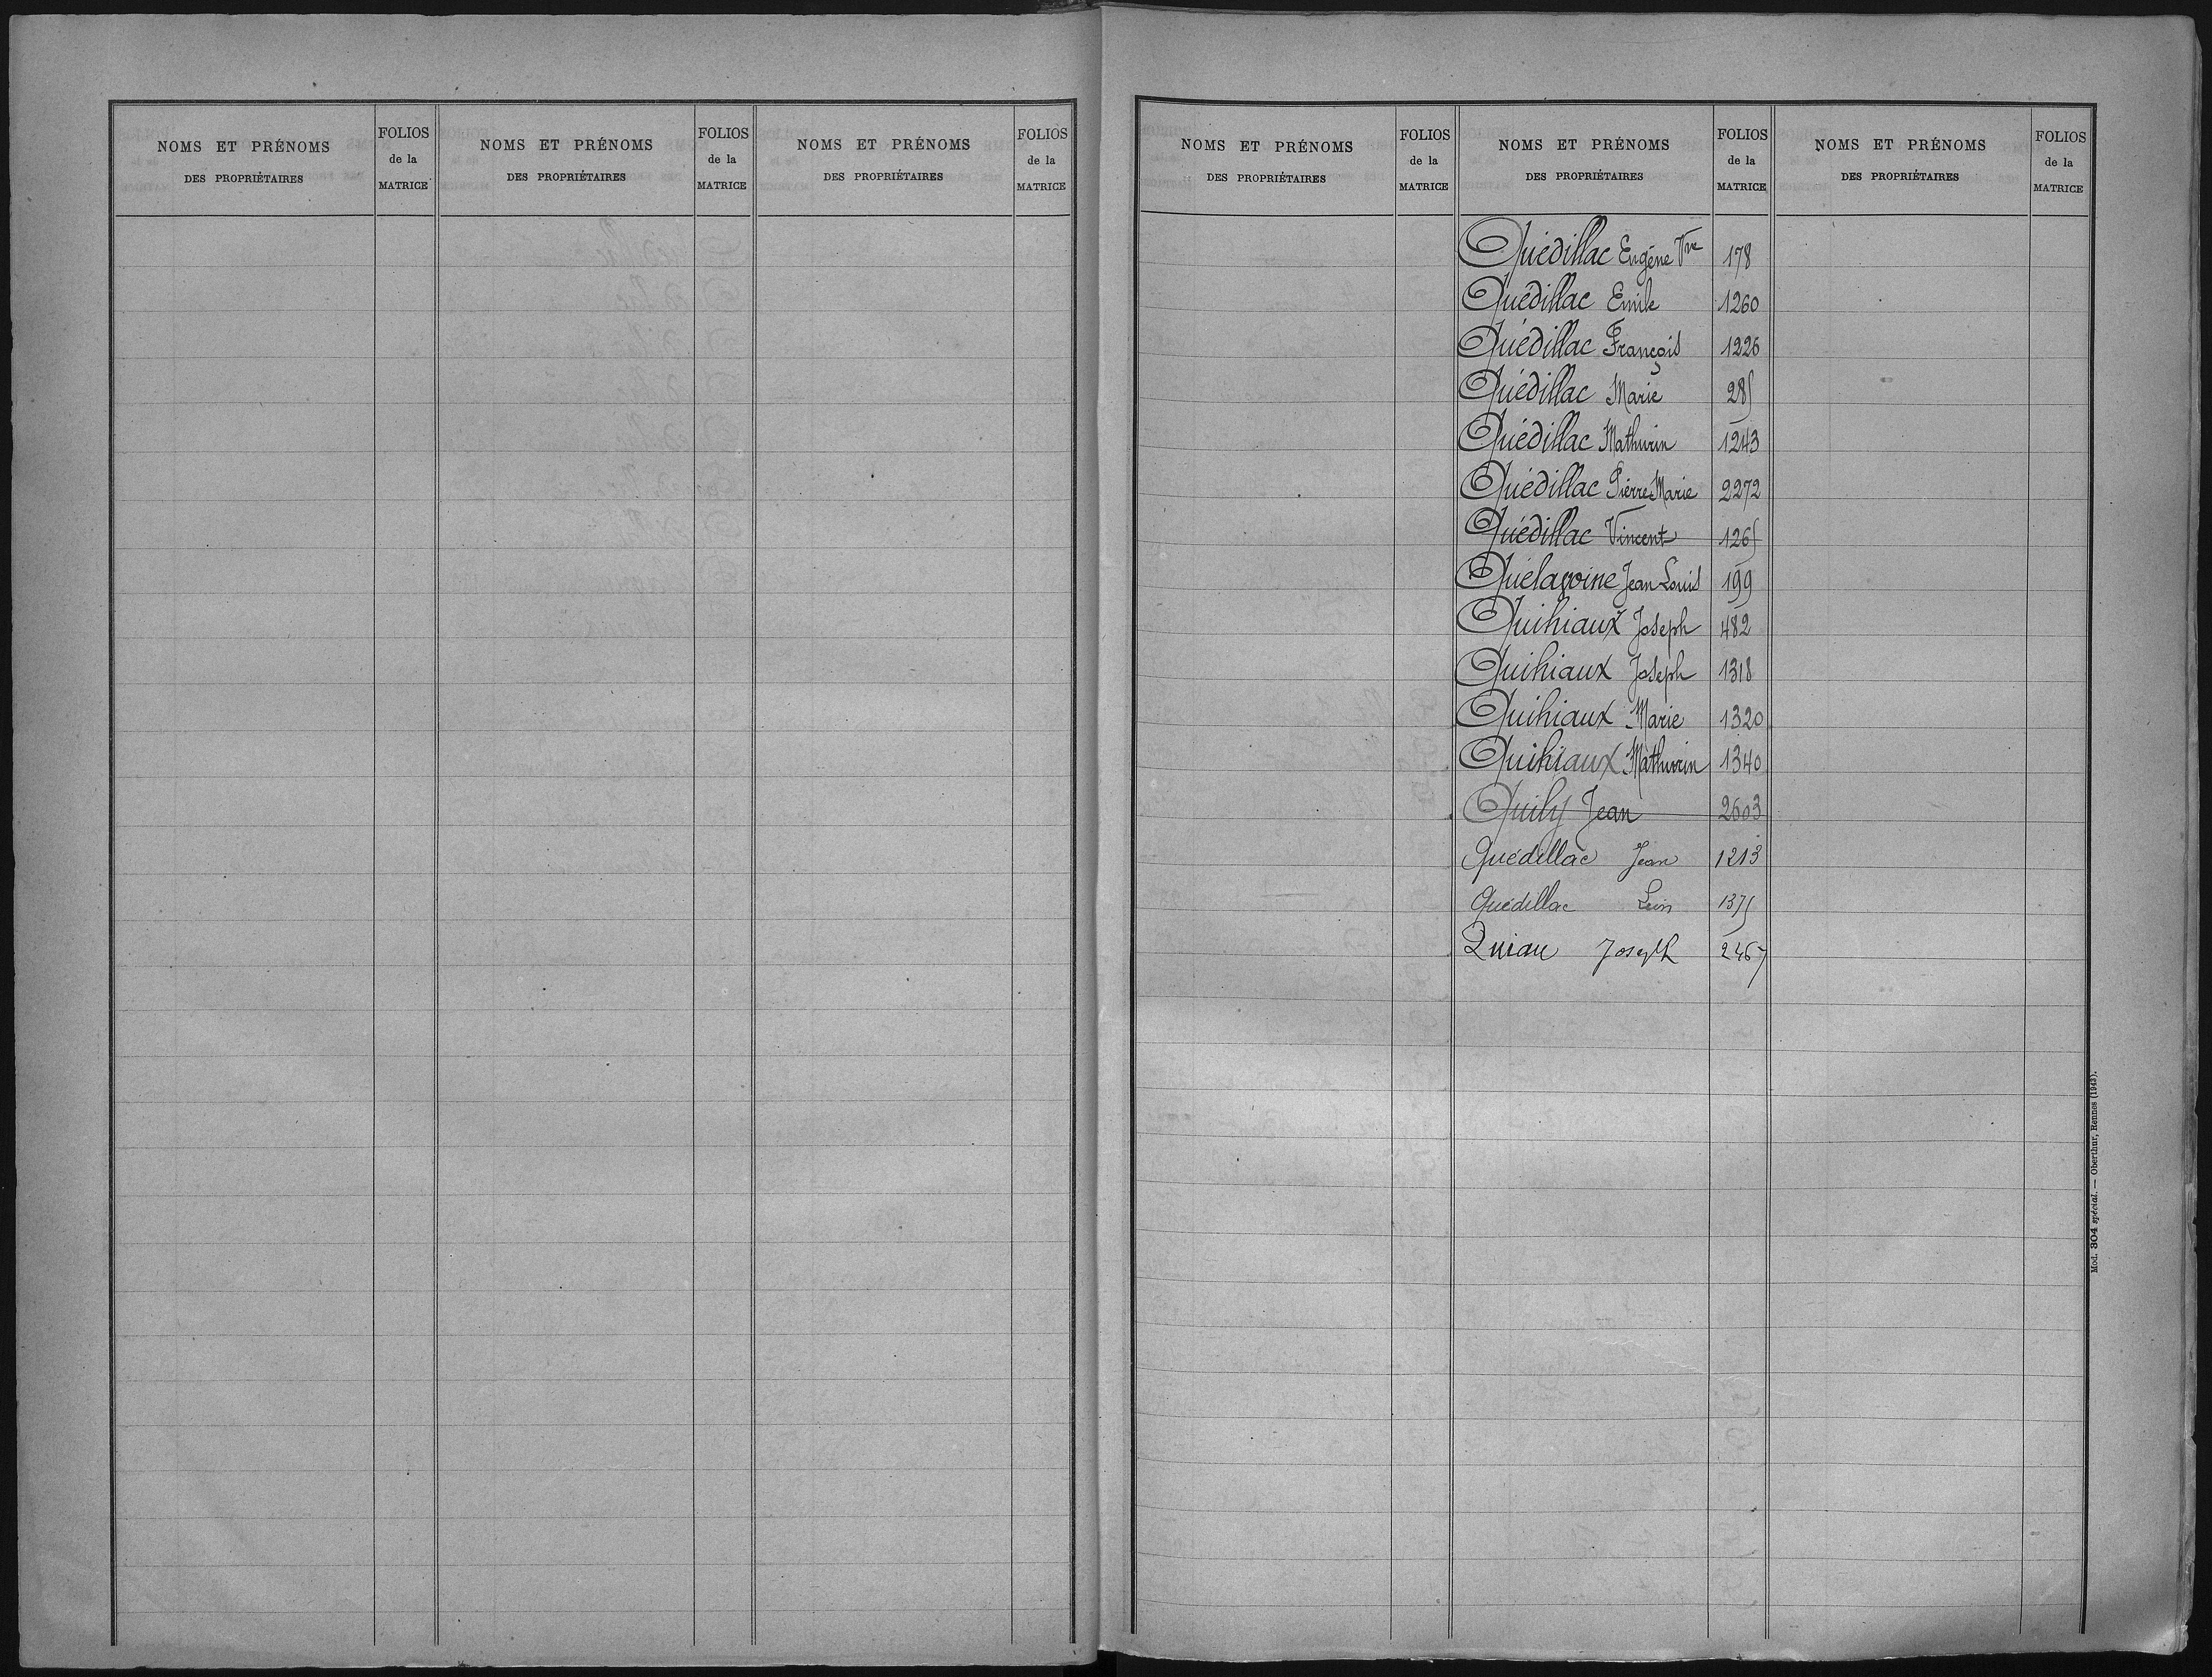 NOMS ET PRÉNOMS
DES PROPRIÉTAIRES
FOLIOS
de la
MATRICE
NOMS ET PRÉNOMS
DES PROPRIÉTAIRES
FOLIOS
de la
MATRICE
NOMS ET PRÉNOMS
DES PROPRIÉTAIRES
FOLIOS
de la
MATRICE
NOMS ET PRÉNOMS
DES PROPRIÉTAIRES
FOLIOS
de la
MATRICE
NOMS ET PRÉNOMS
DES PROPRIÉTAIRES
FOLIOS
de la
MATRICE
NOMS ET PRÉNOMS
DES PROPRIÉTAIRES
FOLIOS
de la
MATRICE
Quédillac Eugène Vve 178
Quédillac Emile 1260
Quédillac François 1226
Quédillac Marie 285
Quédillac Mathurin 1243
Quédillac Pierre Marie 2272
Quédillac Vincent 1265
Quélavoine Jean Louis 199
Quihiaux Joseph 482
Quihiaux Joseph 1318
Quihiaux Marie 1320
Quihiaux Mathurin 1340
Quily Jean 2603
Quédillac Jean 1213
Quédillac Léon 1375
Quiau Joseph 2467
Mod. 304 spécial. — Oberthur, Rennes (1943).